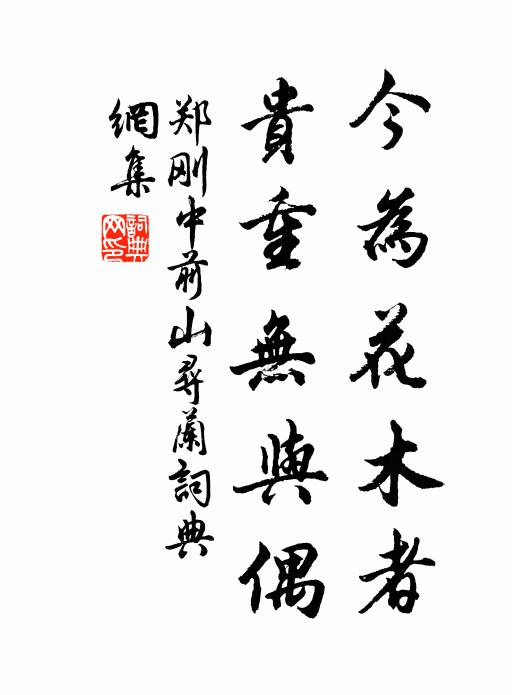 今為花木者
貴重無與偶
郑刚中前山尋蘭詞典
網集
詞典
网印